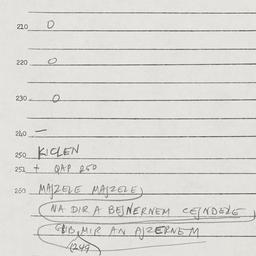 210 O
220 O
230 O
240 —
250 KICLEN
251 + QAP 250
260 MAJZELE MAJZELE
NA DIR A BEJNERNEM CEJNDELE
GIB MIR AN AJZERNEM
249